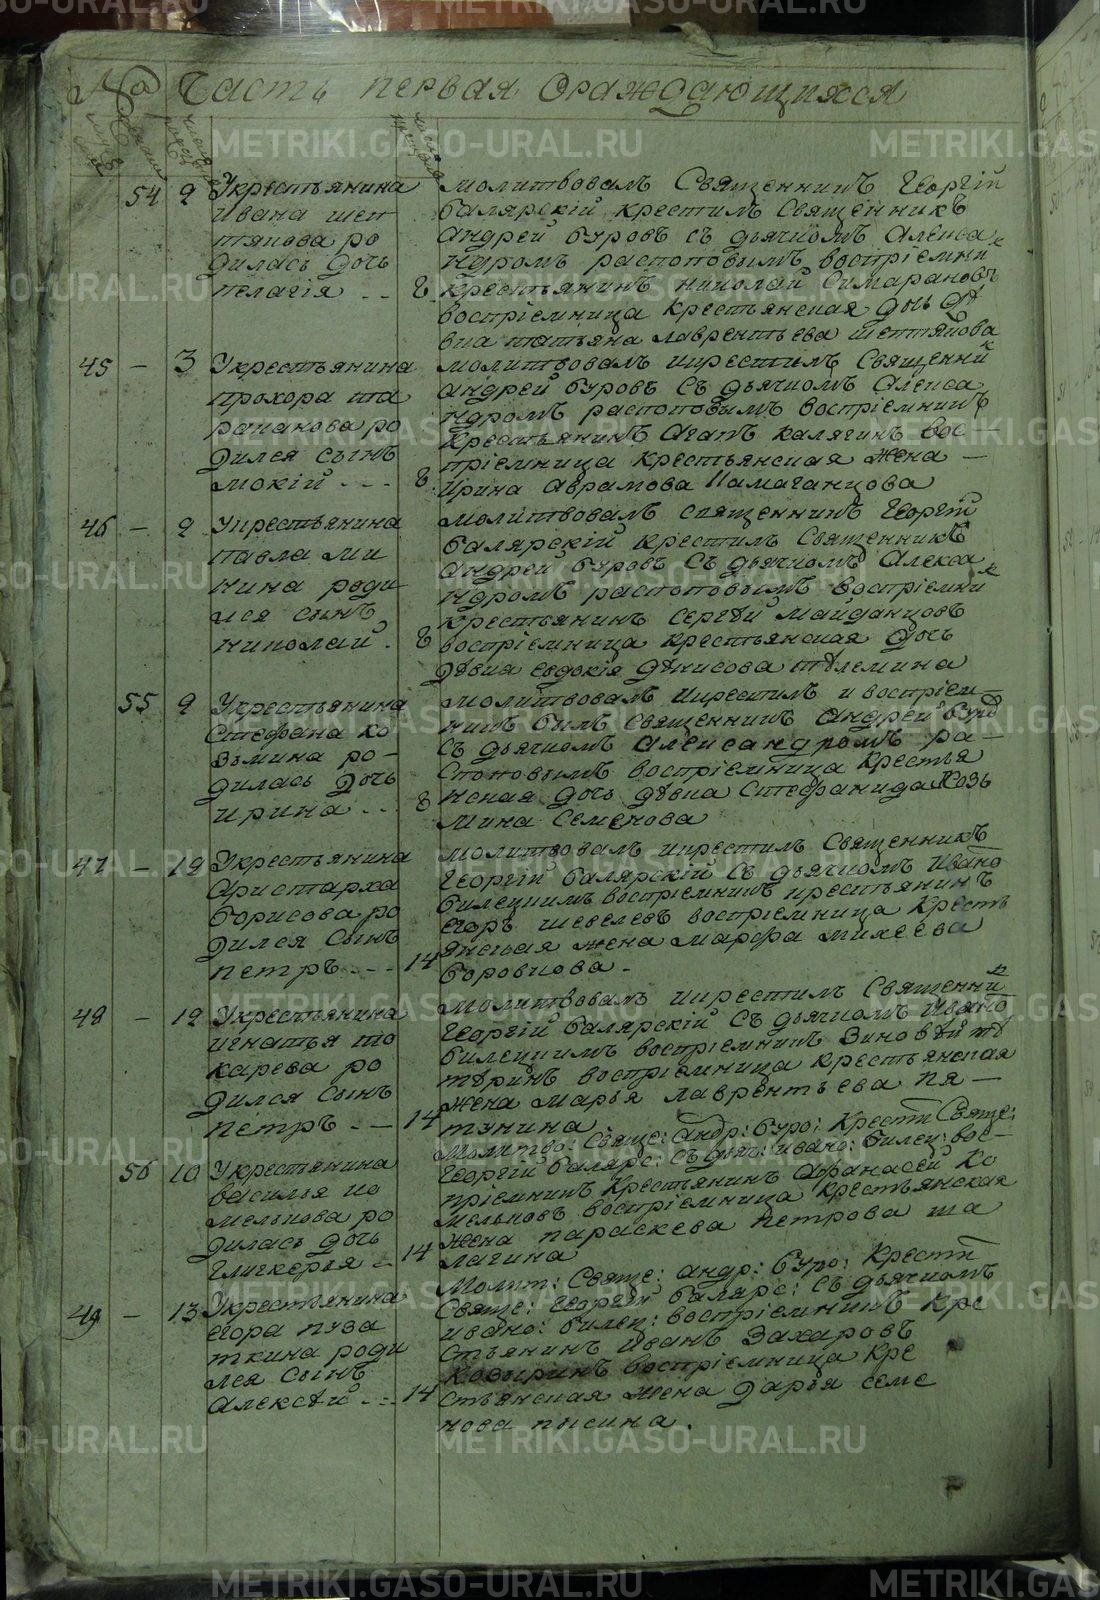 № Часть первая Ораждающихся
54 2 Укрестьянина
ивана шеп
тякова ро
дилась дочь
пелагія 8
молитвовалъ Священникъ Георгій
балярскій крестилъ Священникъ
Андрей буровъ съ дьячкомъ Алекса
ндромъ распоповымъ воспріемни
къ
крестьянинъ николай Симарановъ
воспріемница крестьянская дочь дѣ
вка татьяна лаврентьева шептякова
45 — 3 Укрестьянина
прохора та
раканова ро
дился сынъ
мокій 8
молитвовалъ икрестилъ Священни
къ
андрей буровъ съ дьячкомъ Алекса
ндромъ распоповымъ воспріемникъ
крестьянинъ Агапъ калягинъ вос —
пріемница крестьянская жена —
Ирина Аврамова Намаганцова
46 — 2 Укрестьянина
павла ми
нина роди
лся сынъ
николай 8
молитвовалъ священникъ Георгій
балярскій крестилъ Священникъ
андрей буровъ съ дьячкомъ Алекса
ндромъ распоповымъ воспріемни
къ
крестьянинъ сергѣй майданцовъ
воспріемница крестьянская дочь
дѣвка евдокія денисова телемина
55 2 Укрестьянина
Стефана ко
зьмина ро—
дилась дочь
ирина 8
молитвовалъ икрестилъ и воспріем
никъ былъ священникъ андрей буро
съ дьячкомъ александромъ ра—
споповымъ воспріемница крестья
нская дочь дѣвка Стефанида Козь
мина Семенова
47 — 12 Укрестьянина
Аристарха
борисова ро
дился сынъ
петръ 14
молитвовалъ икрестилъ Священникъ
Георгій балярскій съ дьячкомъ ивано
билецкимъ воспріемникъ крестьянинъ
егоръ шевелевъ воспріемница Кресть
янская жена марфа михеева
боровкова
48 — 12 Укрестьянина
игнатья то
карева ро
дился Сынъ
петръ 14
молитвовалъ икрестилъ Священни
къ
Георгій балярскій съ дьячкомъ ивано
билецкимъ воспріемникъ Зиновѣй те
теринъ воспріемница крестьянская
жена марья лаврентьева пя —
тунина
56 10 Укрестянина
василья ко
мелькова ро
дилась дочь
Гликкерья 14
Молитво: Свяще: Андр: буро: Крести Свяще:
Георгій балярс: съ дьяч: ивано: билец: вос—
пріемникъ Крестьянинъ Афанасей Ко
мельковъ воспріемница Крестьянская
жена параскева петрова ша
лагина
49 — 13 Укрестьянина
егора пуза
ткина роди
лся Сынъ
алексѣй 14
Молит: Свяще: андр: буро: Крести
Свяще: Георгій балярс: съ дьячкомъ
ивано: билец: воспріемникъ Кре
стьянинъ иванъ Захаровъ
Козыринъ воспріемница Кре
стьянская жена дарья семе
нова пысина.
METRIKI.GASO-URAL.RU